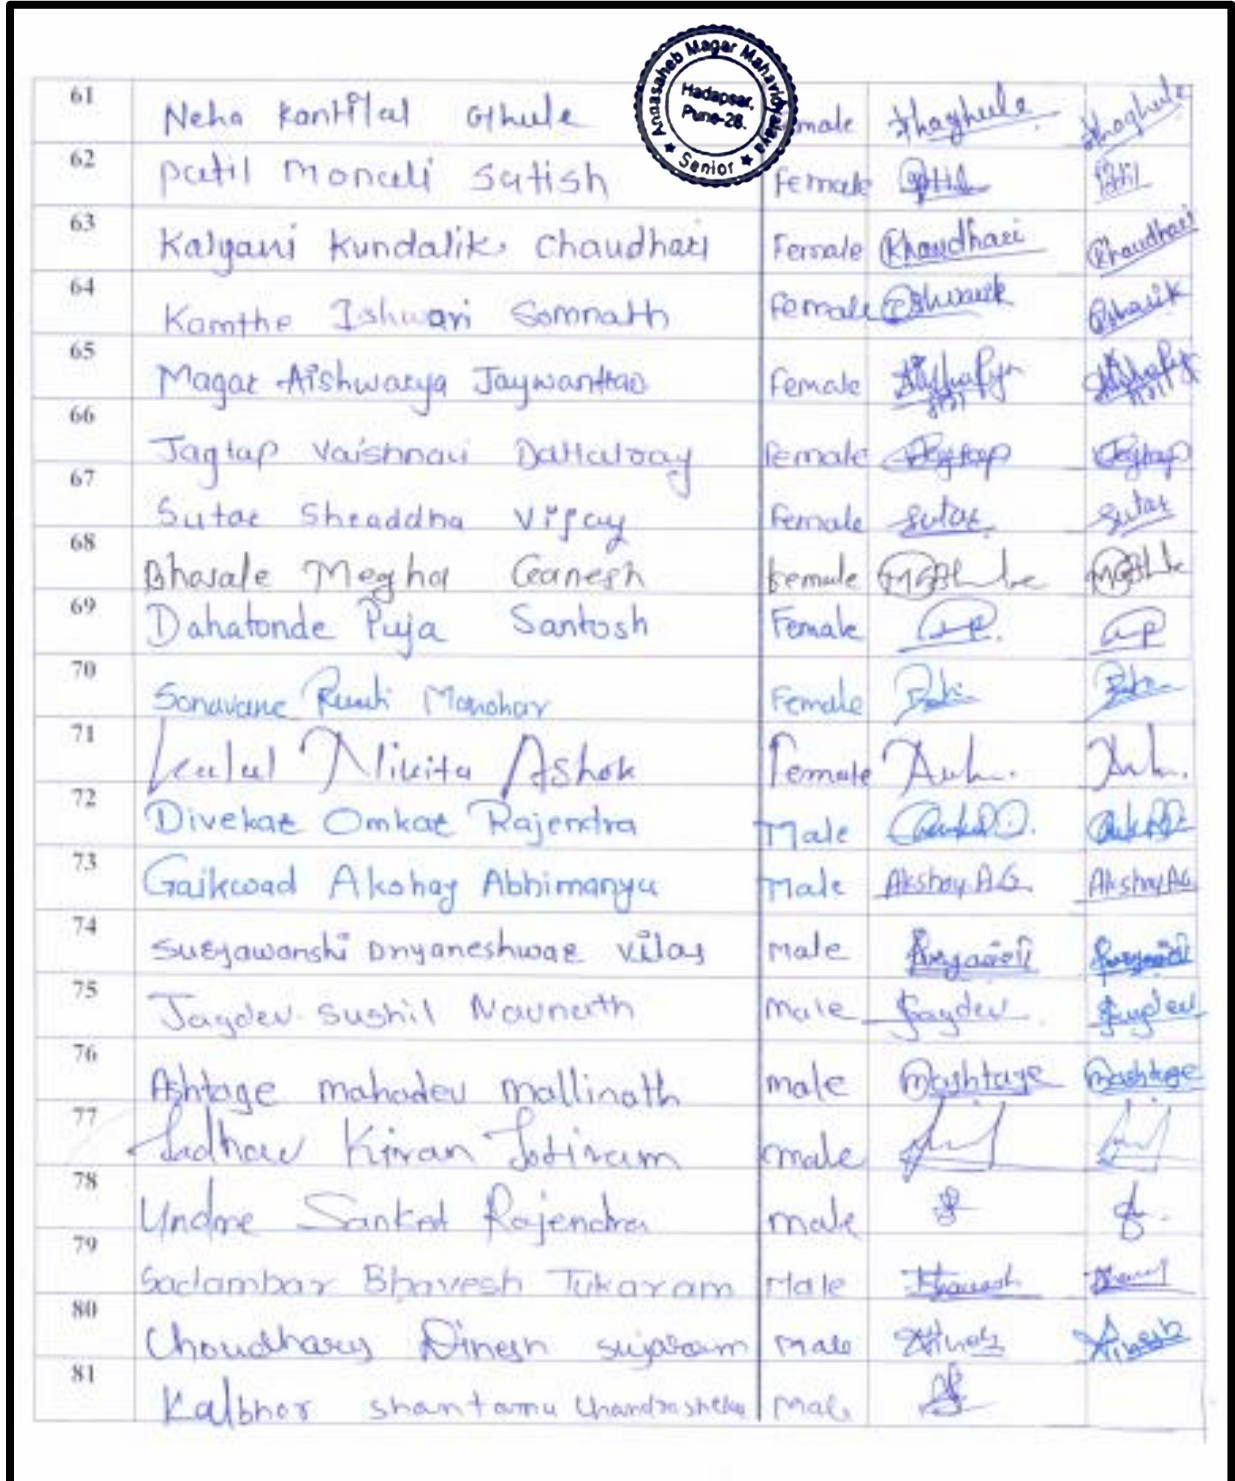 Annasaheb Magar Mahavidyalaya
Hadapsar,
Pune-28.
★ Senior ★
61 Neha Kantilal Ghule male Jhaghule Jhaghule
62 Patil Monali Satish Female Patil Patil
63 Kalyani Kundalik Chaudhari Female Khaudhari Khaudhari
64 Kamthe Ishwari Somnath Female
65 Magar Aishwarya Jaywantrao Female
66 Jagtap Vaishnavi Dattatray Female Jagtap Jagtap
67 Sutar Shraddha Vijay Female Sutar Sutar
68 Bhosale Megha Ganesh Female
69 Dahatonde Puja Santosh Female
70 Sonavane Rutuja Manohar Female
71 Nikita Ashok Female
72 Divekar Omkar Rajendra Male
73 Gaikwad Akshay Abhimanyu Male Akshay A.G. Akshay A.G.
74 Suryawanshi Dnyaneshwar Vilas Male
75 Jagdev Sushil Navnath Male Jagdev Jagdev
76 Ashtage mahadev mallinath male mashtage mashtage
77 Jadhav Kiran Jotiram male
78 Undre Sanket Rajendra male
79 Sadambar Bhavesh Tukaram Male Bhavesh
80 Choudhary Dinesh sujaram Male Dinesh Dinesh
81 Kalbhor shantanu Chandrashekhar Male